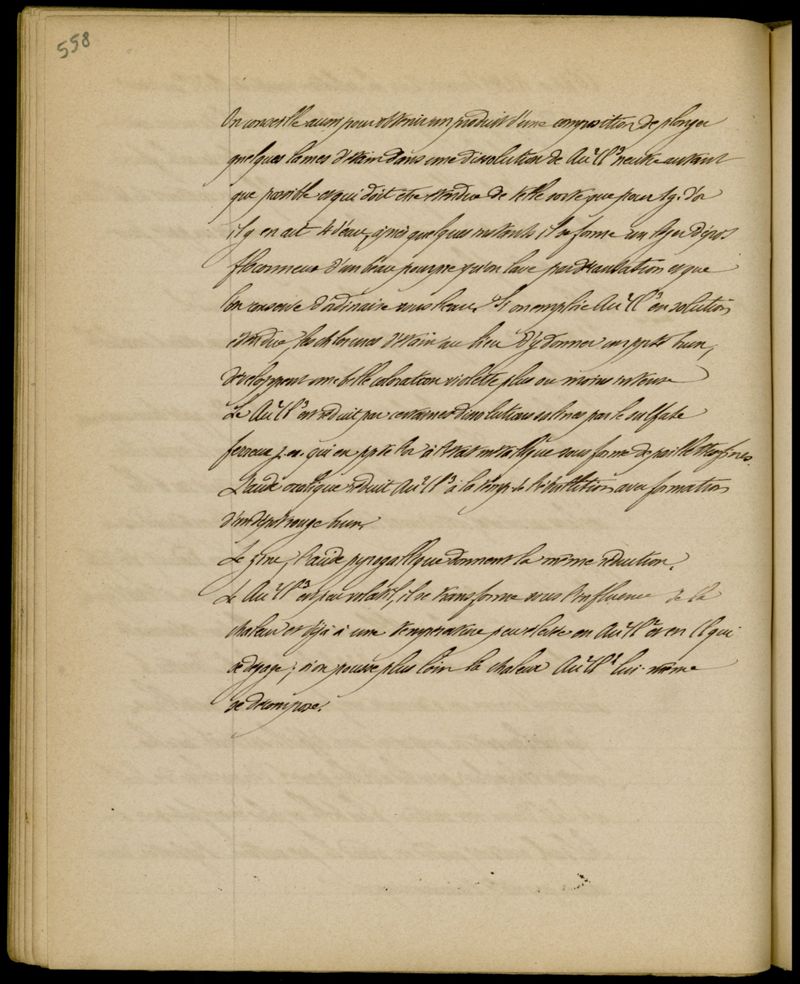 558
On conseille aussi pour obtenir un produit d'une composition de plonger
quelques lames d'étain dans une dissolution de Au²Cl³ neutre autant
que possible et qui doit être étendue de telle sorte que pour 1g. d'or
il y en ait d'eau, après quelques instants il se forme un léger dépôt
floconneux d'un beau pourpre qu'on lave par décantation et que
l'on conserve d'ordinaire sous l'eau. Si on emploie Au²Cl³ en solution
étendue, les chlorures d'étain au lieu d'y donner un ppté brun,
développent une belle coloration violette plus ou moins intense
Le Au²Cl³ est réduit par certaines dissolutions salines par le sulfate
ferreux p. ex. qui en ppte l'or à l'état métallique sous forme de paillettes
L'acide oxalique réduit Au²Cl³ à la temp. de l'ébullition avec formation
d'un dépôt rouge brun.
Le zinc, l'acide pyrogallique donnent la même réduction.
Le Au²Cl³ est peu volatil, il se transforme sous l'influence de la
chaleur et déjà à une température peu élevée en Au²Cl et en Cl qui
se dégage; si on pousse plus loin la chaleur Au²Cl lui-même
se décompose.